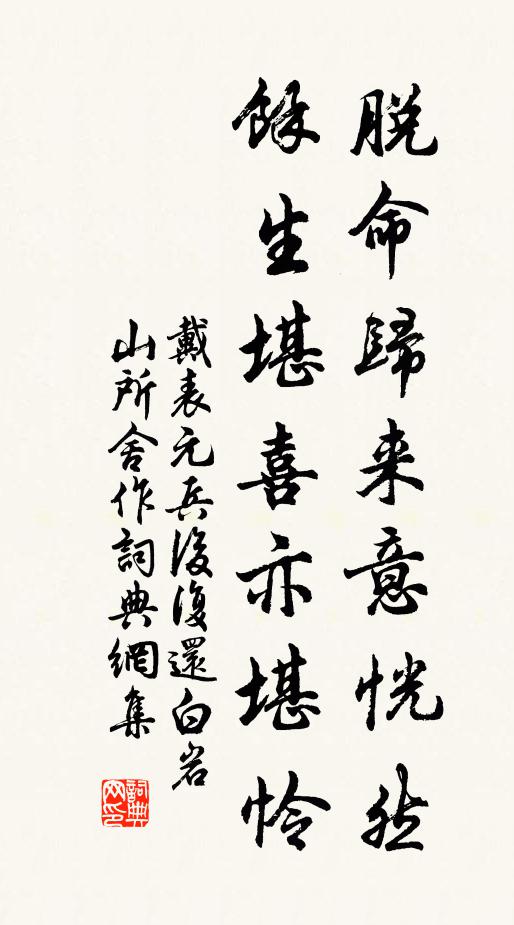 脱命歸来意恍然
餘生堪喜亦堪憐
戴表元兵後復還白岩
山所舍作詞典網集
詞典
网印